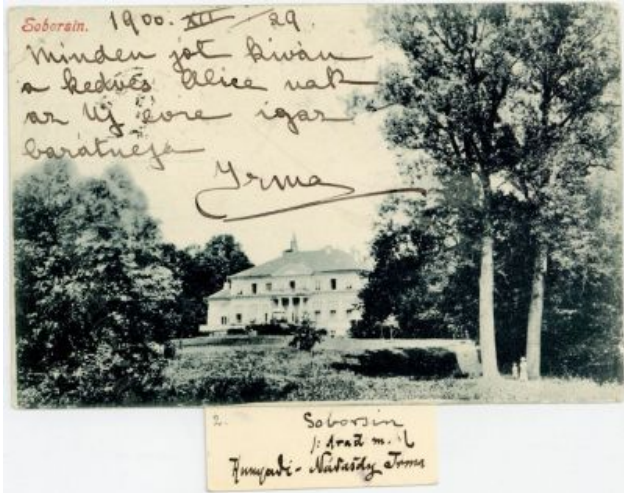 Soborsin.
1900. XII/29
Minden jót kiván
a kedves Alice nak
az Uj évre igaz
barátnéja
Irma
2.
Soborsin
/: Arad m. :/
Hunyadi - Nádasdy Irma